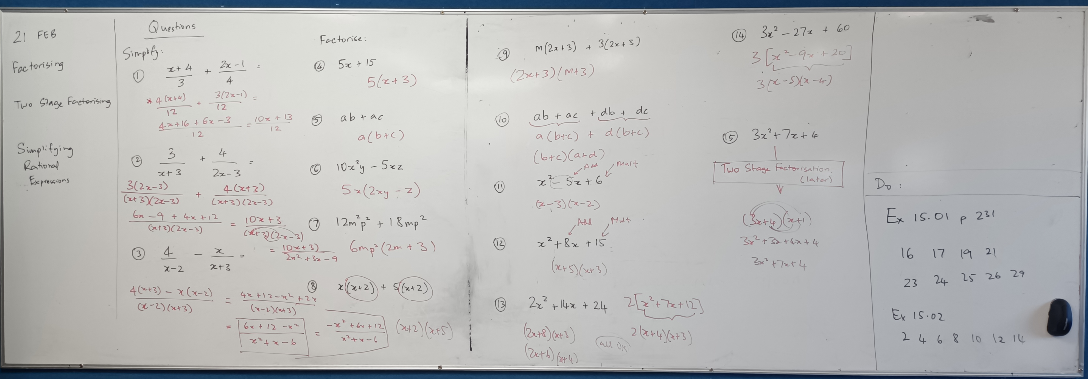 21 FEB
Factorising
Two Stage Factorising
Simplifying
Rational
Expressions
Questions
Simplify:
① (x+4)/3 + (2x-1)/4 =
4(x+4)/12 + 3(2x-1)/12 =
(4x+16+6x-3)/12 = (10x+13)/12
② 3/(x+3) + 4/(2x-3) =
3(2x-3)/((x+3)(2x-3)) + 4(x+3)/((x+3)(2x-3))
(6x-9+4x+12)/((x+3)(2x-3)) = (10x+3)/((x+3)(2x-3))
= (10x+3)/(2x²+3x-9)
③ 4/(x-2) - x/(x+3) =
(4(x+3) - x(x-2))/((x-2)(x+3)) = (4x+12-x²+2x)/((x-2)(x+3))
= (6x+12-x²)/(x²+x-6) = (-x²+6x+12)/(x²+x-6)
Factorise:
④ 5x+15
5(x+3)
⑤ ab+ac
a(b+c)
⑥ 10x²y - 5xz
5x(2xy-z)
⑦ 12m²p² + 18mp²
6mp²(2m+3)
⑧ x(x+2) + 5(x+2)
(x+2)(x+5)
⑨ m(2x+3) + 3(2x+3)
(2x+3)(m+3)
⑩ ab+ac + db+dc
a(b+c) + d(b+c)
(b+c)(a+d)
Add Mult
⑪ x²-5x+6
(x-3)(x-2)
Add Mult
⑫ x²+8x+15
(x+5)(x+3)
⑬ 2x²+14x+24 2[x²+7x+12]
(2x+8)(x+3) 2(x+4)(x+3)
(2x+6)(x+4)
⑭ 3x²-27x+60
3[x²-9x+20]
3(x-5)(x-4)
⑮ 3x²+7x+4
Two Stage Factorisation
(later)
(3x+4)(x+1)
3x²+3x+4x+4
3x²+7x+4
Do:
Ex 15.01 p 231
16 17 19 21
23 24 25 26 29
Ex 15.02
2 4 6 8 10 12 14